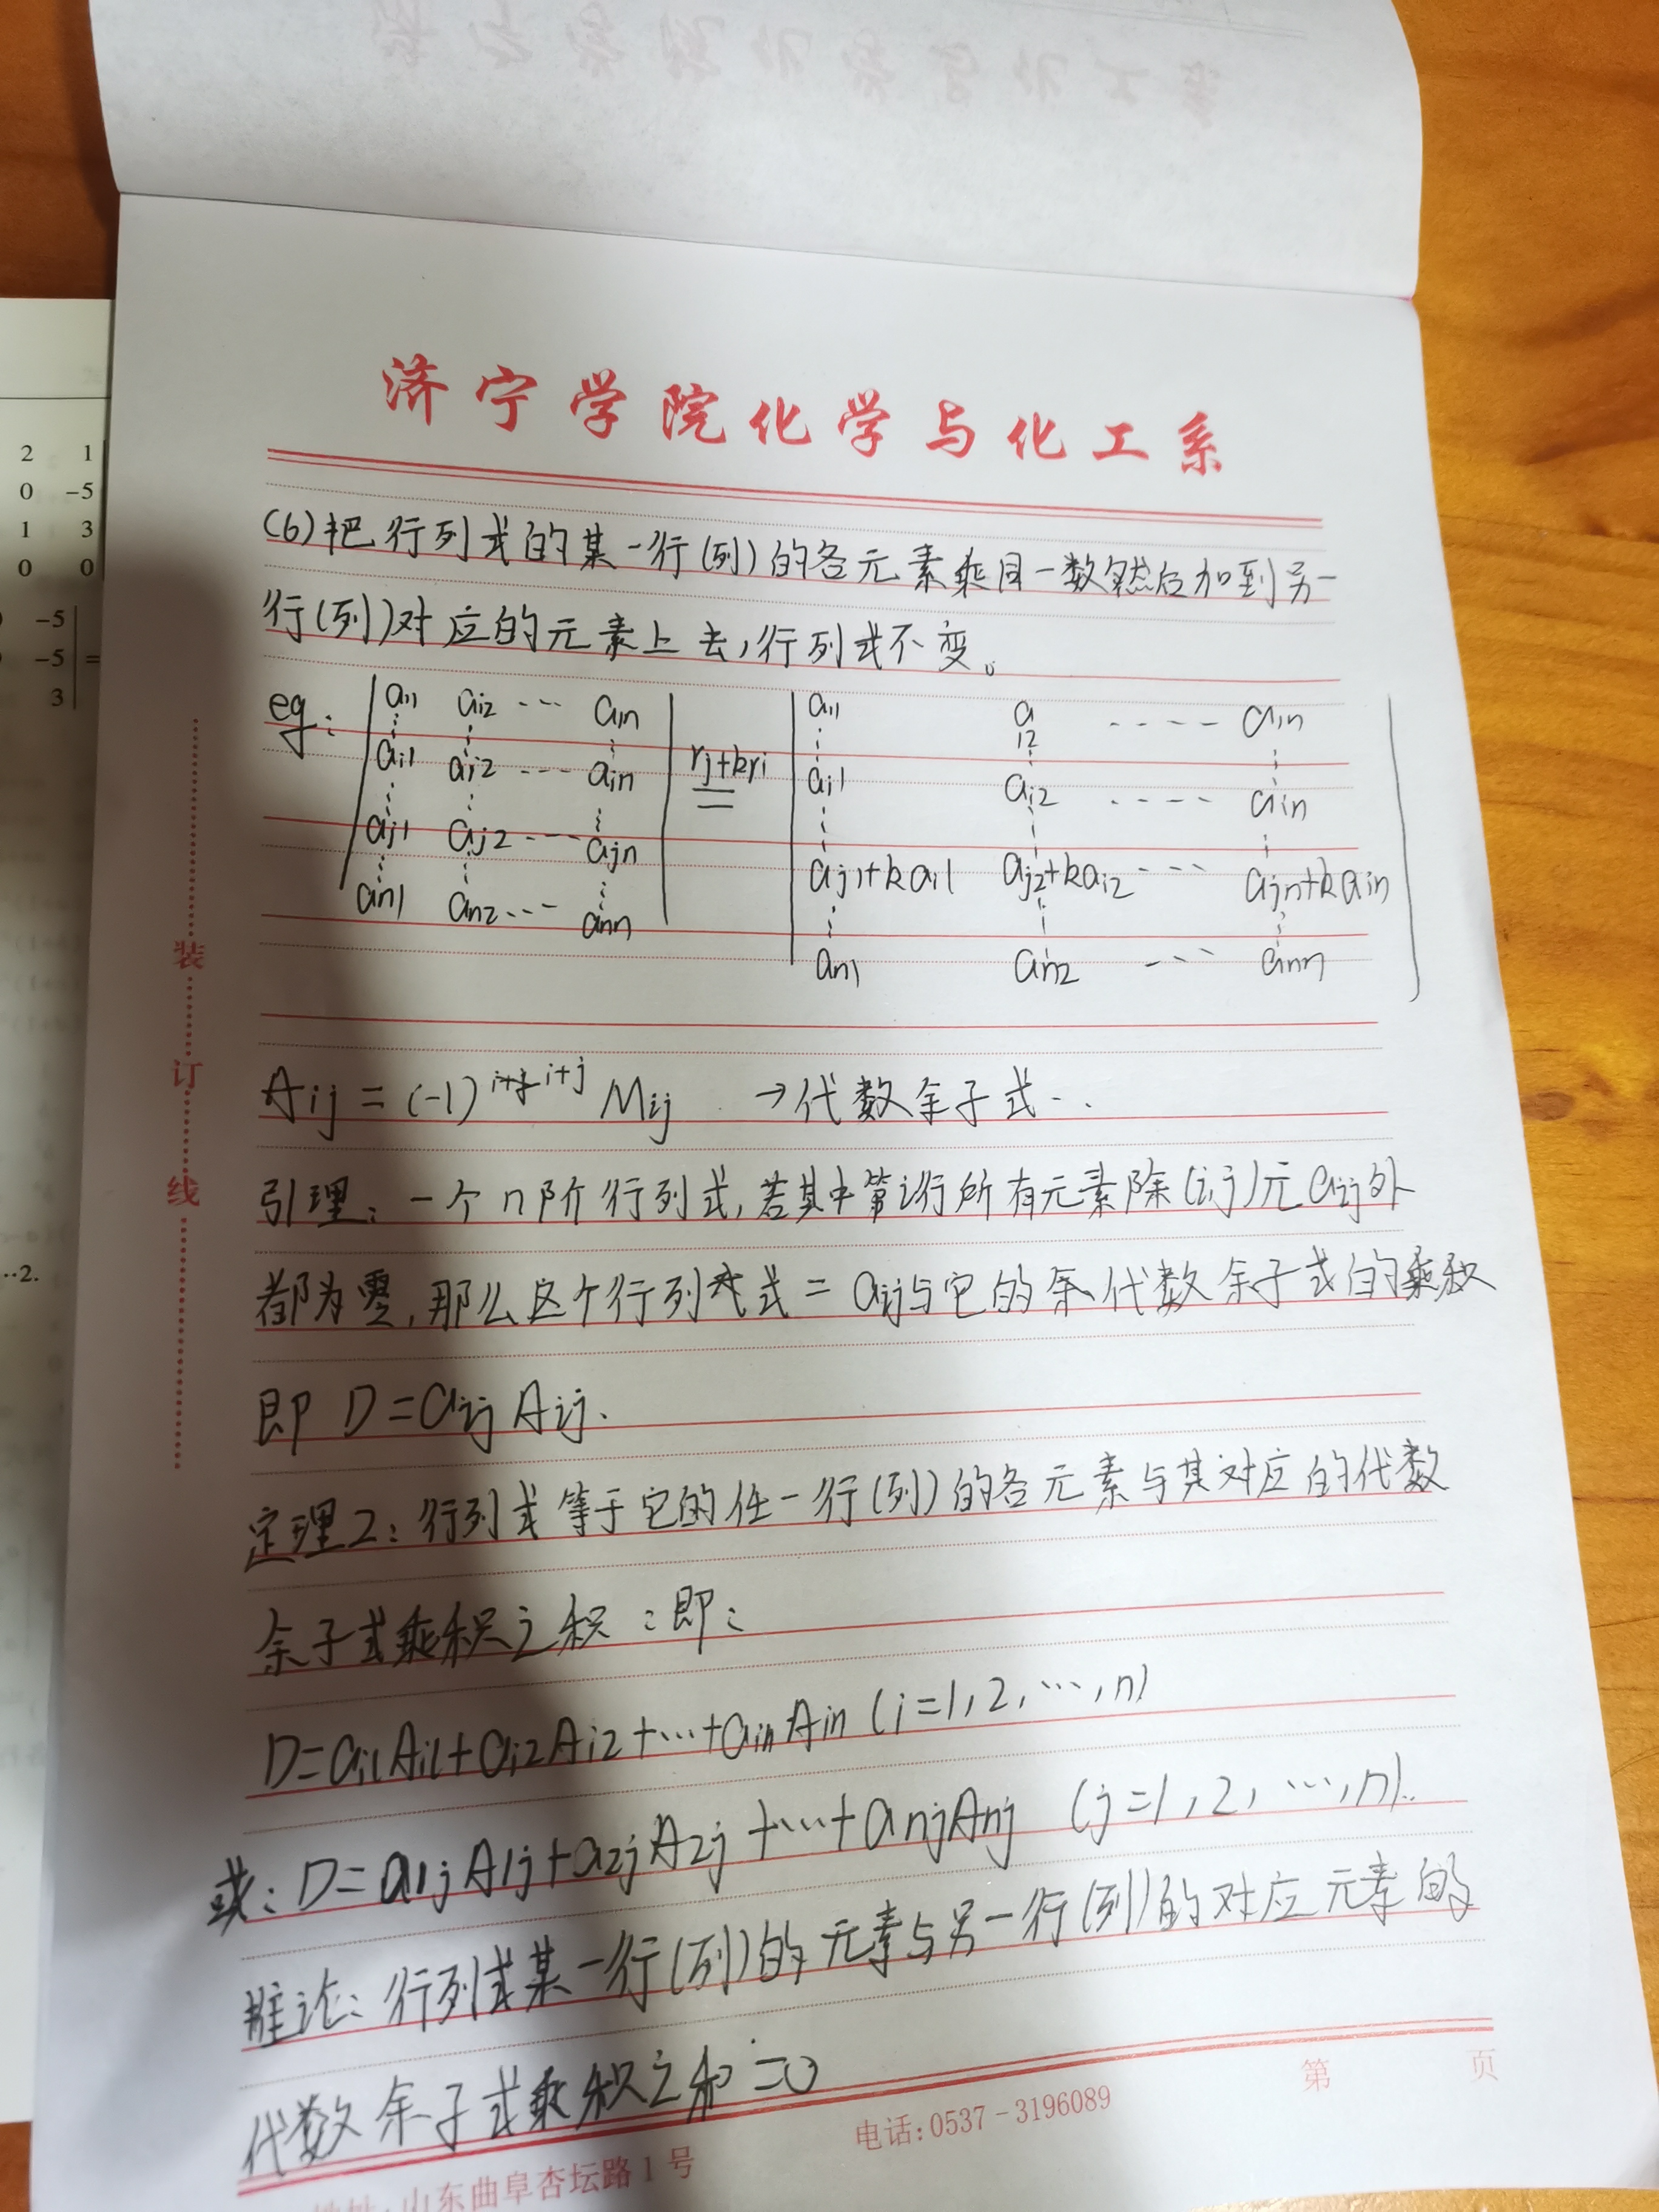 济宁学院化学与化工系
2 1
0 -5
1 3
0 0
-5
-5 =
3
··2.
(6)把行列式的某一行(列)的各元素乘同一数然后加到另一
行(列)对应的元素上去,行列式不变。
eg: a11 ai2 ··· a1n rj+kri a11 a12 ···· a1n
ai1 ai2 ··· ain = ai1 ai2 ···· ain
aj1 aj2 ··· ajn aj1+kai1 aj2+kai2 ··· ajn+kain
an1 an2 ··· ann an1 an2 ··· ann
Aij = (-1)^i+j Mij →代数余子式··
引理: 一个n阶行列式,若其中第i行所有元素除(i,j)元aij外
都为零,那么这个行列式 = aij与它的代数余子式的乘积
即 D=aijAij.
定理2: 行列式等于它的任一行(列)的各元素与其对应的代数
余子式乘积之积:即:
D=ai1Ai1+ai2Ai2+···+ainAin (i=1,2,···,n)
或: D=a1jA1j+a2jA2j+···+anjAnj (j=1,2,···,n).
推论: 行列式某一行(列)的元素与另一行(列)的对应元素的
代数余子式乘积之和=0
装
订
线
第 页
电话:0537-3196089
山东曲阜杏坛路1号